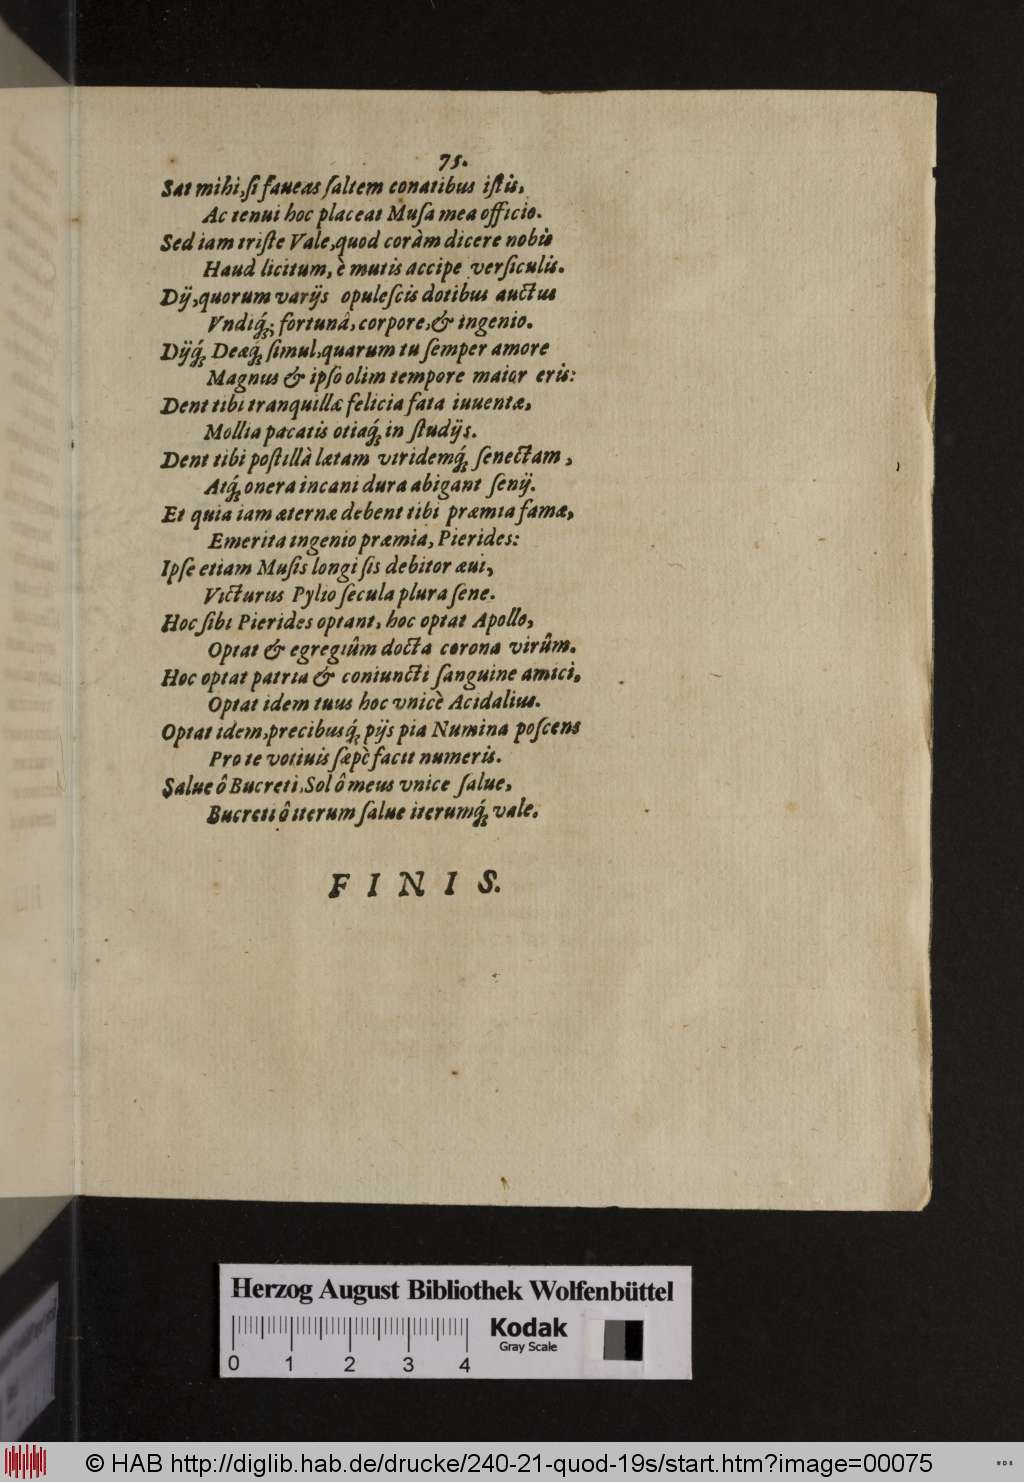 75.
Sat mihi, ſi faueas ſaltem conatibus iſtis,
Ac tenui hoc placeat Muſa mea officio.
Sed iam triſte Vale, quod coràm dicere nobis
Haud licitum, è mutis accipe verſiculis.
Dij, quorum varijs opuleſcis dotibus auctus
Vndiq́;, fortunâ, corpore, & ingenio.
Dijq́; Deæq́; ſimul, quarum tu ſemper amore
Magnus & ipſo olim tempore maior eris:
Dent tibi tranquillæ felicia fata iuuentæ,
Mollia pacatis otiaq́; in ſtudijs.
Dent tibi poſtillà lætam viridemq́; ſenectam,
Atq́; onera incani dura abigant ſenij.
Et quia iam æternæ debent tibi præmia famæ,
Emerita ingenio præmia, Pierides:
Ipſe etiam Muſis longi ſis debitor æui,
Victurus Pylio ſecula plura ſene.
Hoc ſibi Pierides optant, hoc optat Apollo,
Optat & egregiûm docta corona virûm.
Hoc optat patria & coniuncti ſanguine amici,
Optat idem tuus hoc vnicè Acidalius.
Optat idem, precibusq́; pijs pia Numina poſcens
Pro te votiuis ſæpè facit numeris.
Salue ô Bucreti, Sol ô meus vnice ſalue,
Bucreti ô iterum ſalue iterumq́; vale.
FINIS.
Herzog August Bibliothek Wolfenbüttel
Kodak
Gray Scale
0 1 2 3 4
© HAB http://diglib.hab.de/drucke/240-21-quod-19s/start.htm?image=00075